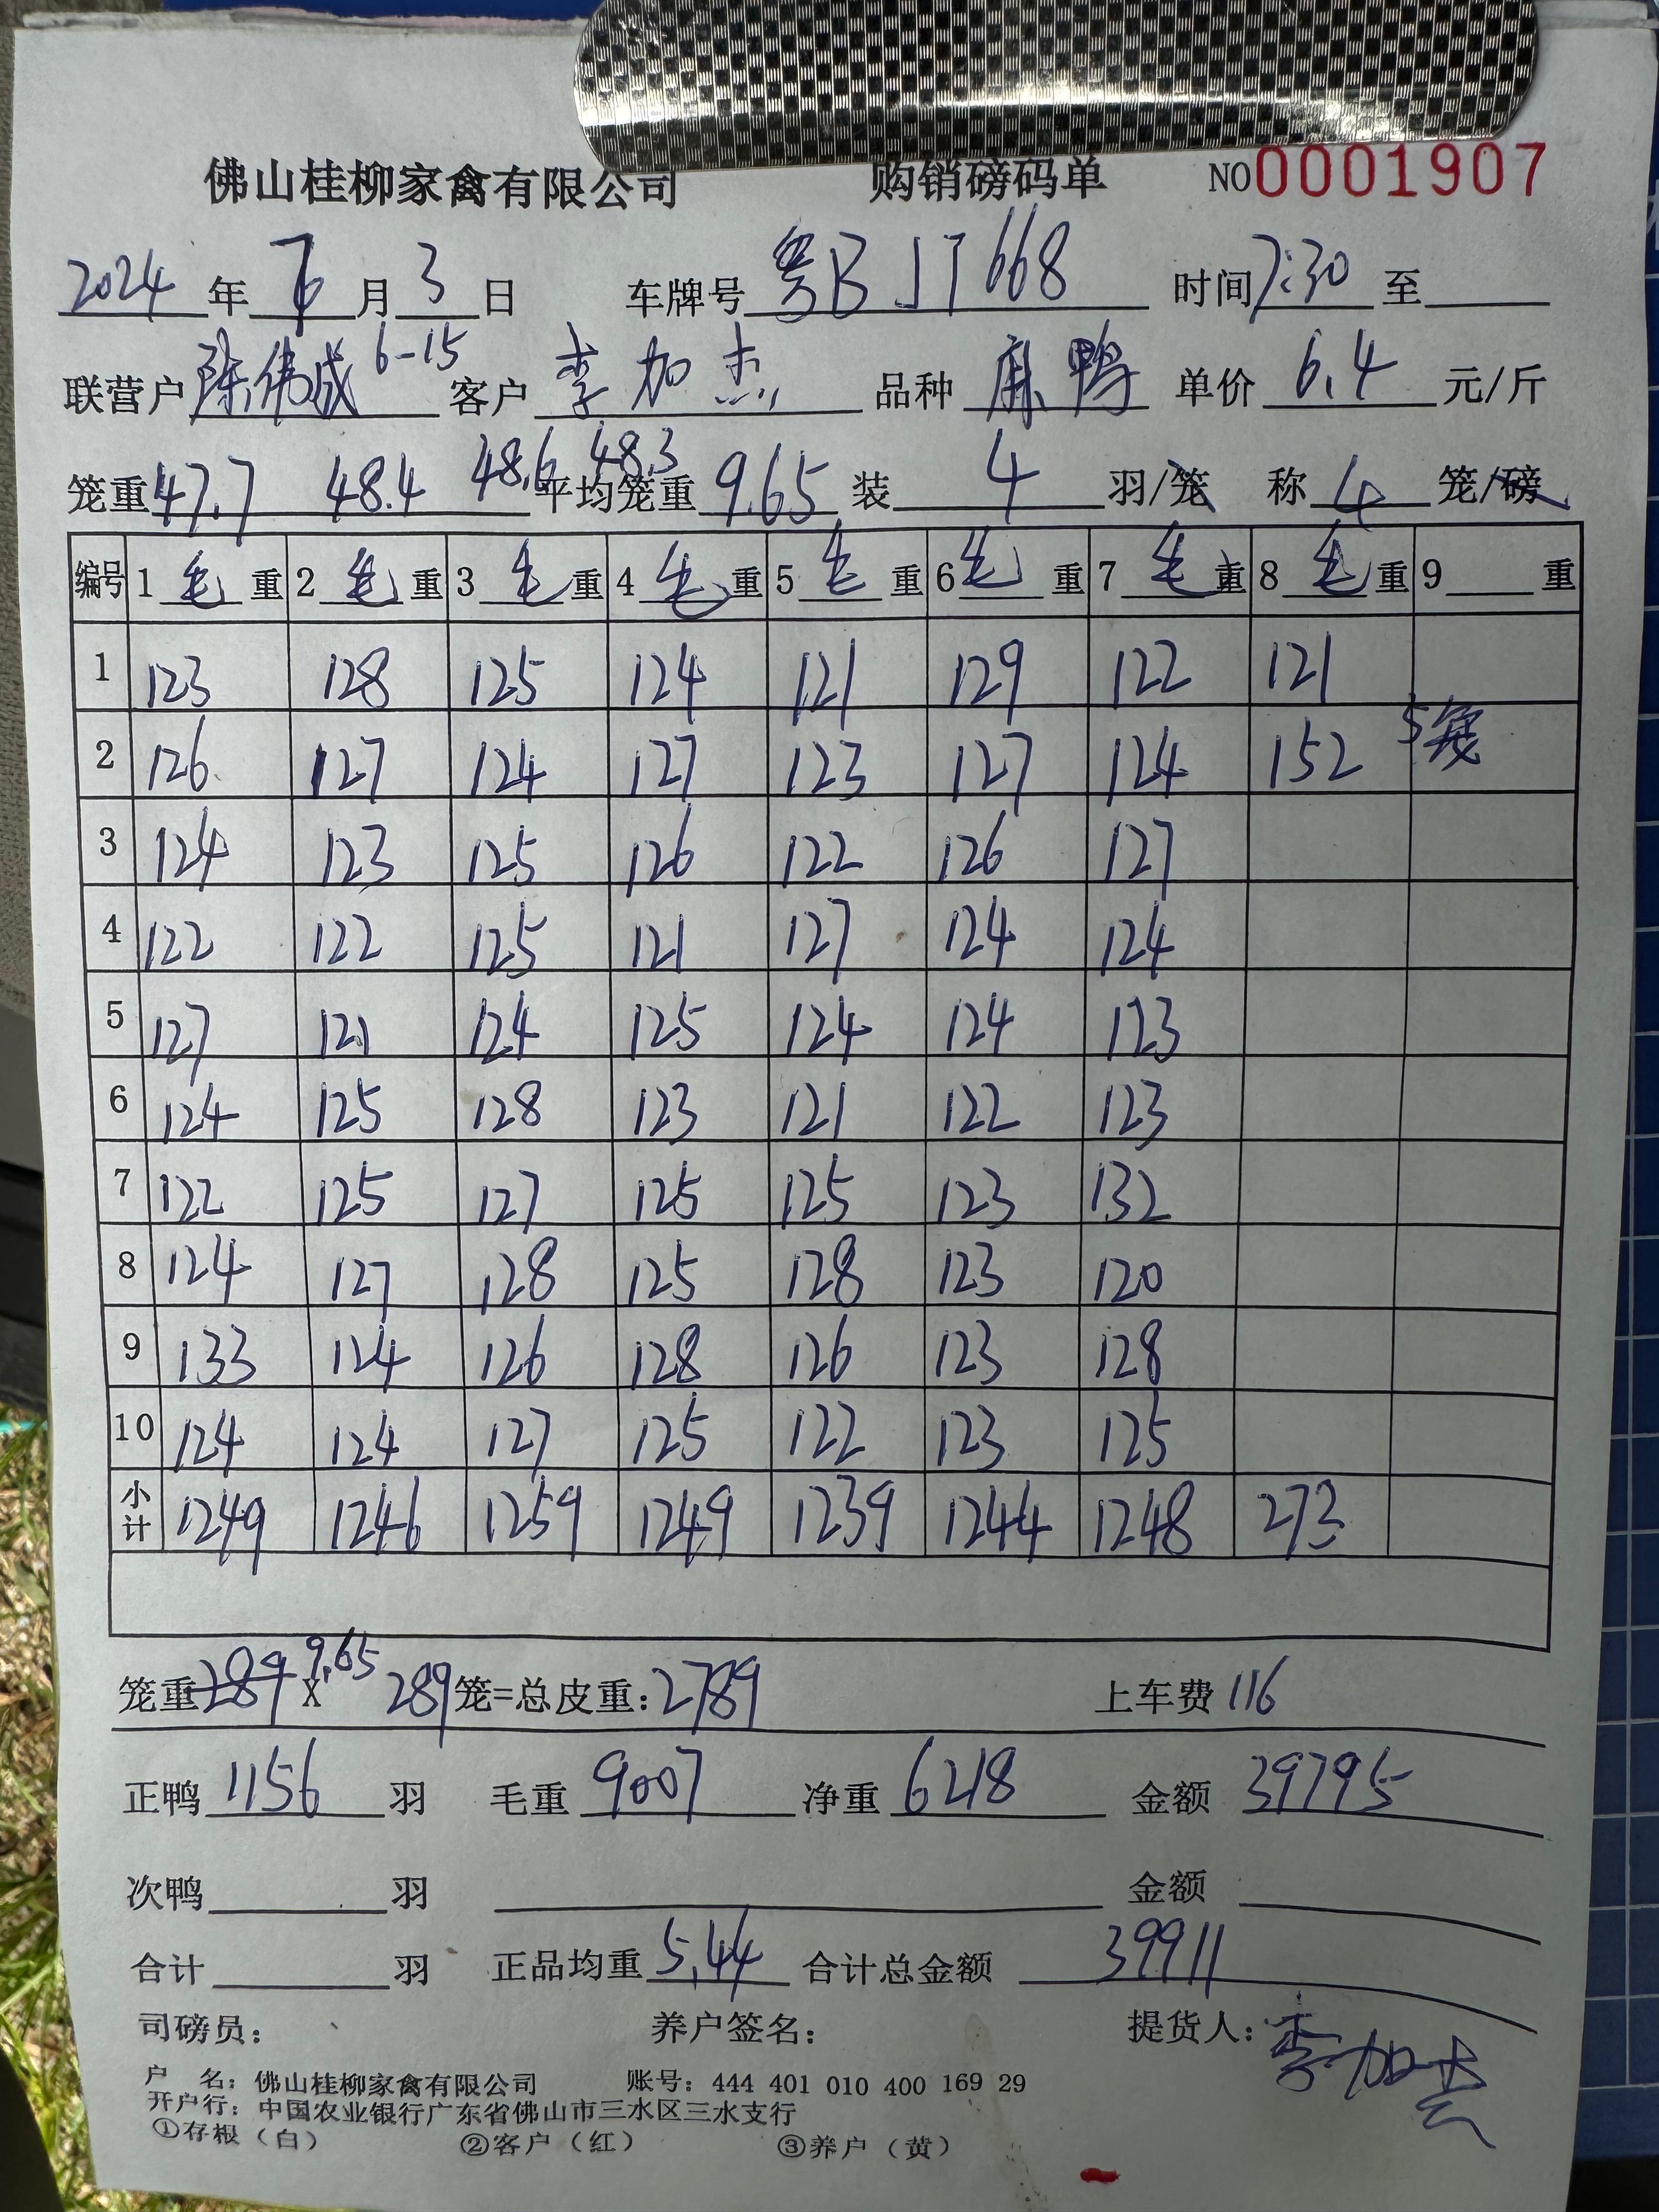 佛山桂柳家禽有限公司 购销磅码单 NO0001907
2024 年 6 月 3 日 车牌号 粤B JT668 时间 7:30 至
联营户 陈伟成 6-15 客户 李加杰 品种 麻鸭 单价 6.4 元/斤
笼重 47.7 48.4 48.6 48.3 平均笼重 9.65 装 4 羽/笼 称 4 笼/磅
编号 1 毛 重 2 毛 重 3 毛 重 4 毛 重 5 毛 重 6 毛 重 7 毛 重 8 毛 重 9 重
1 123 128 125 124 121 129 122 121
2 126 127 124 127 123 127 124 152 5笼
3 124 123 125 126 122 126 127
4 122 122 125 121 127 124 124
5 127 121 124 125 124 124 123
6 124 125 128 123 121 122 123
7 122 125 127 125 125 123 132
8 124 127 128 125 128 123 120
9 133 124 126 128 126 123 128
10 124 124 127 125 122 123 125
小计 1249 1246 1259 1249 1239 1244 1248 273
笼重 289 9.65 X 289 笼=总皮重：2789 上车费 116
正鸭 1156 羽 毛重 9007 净重 6218 金额 39795
次鸭 羽 金额
合计 羽 正品均重 5.44 合计总金额 39911
司磅员： 养户签名： 提货人：李加杰
户 名：佛山桂柳家禽有限公司 账号：444 401 010 400 169 29
开户行：中国农业银行广东省佛山市三水区三水支行
①存根（白） ②客户（红） ③养户（黄）